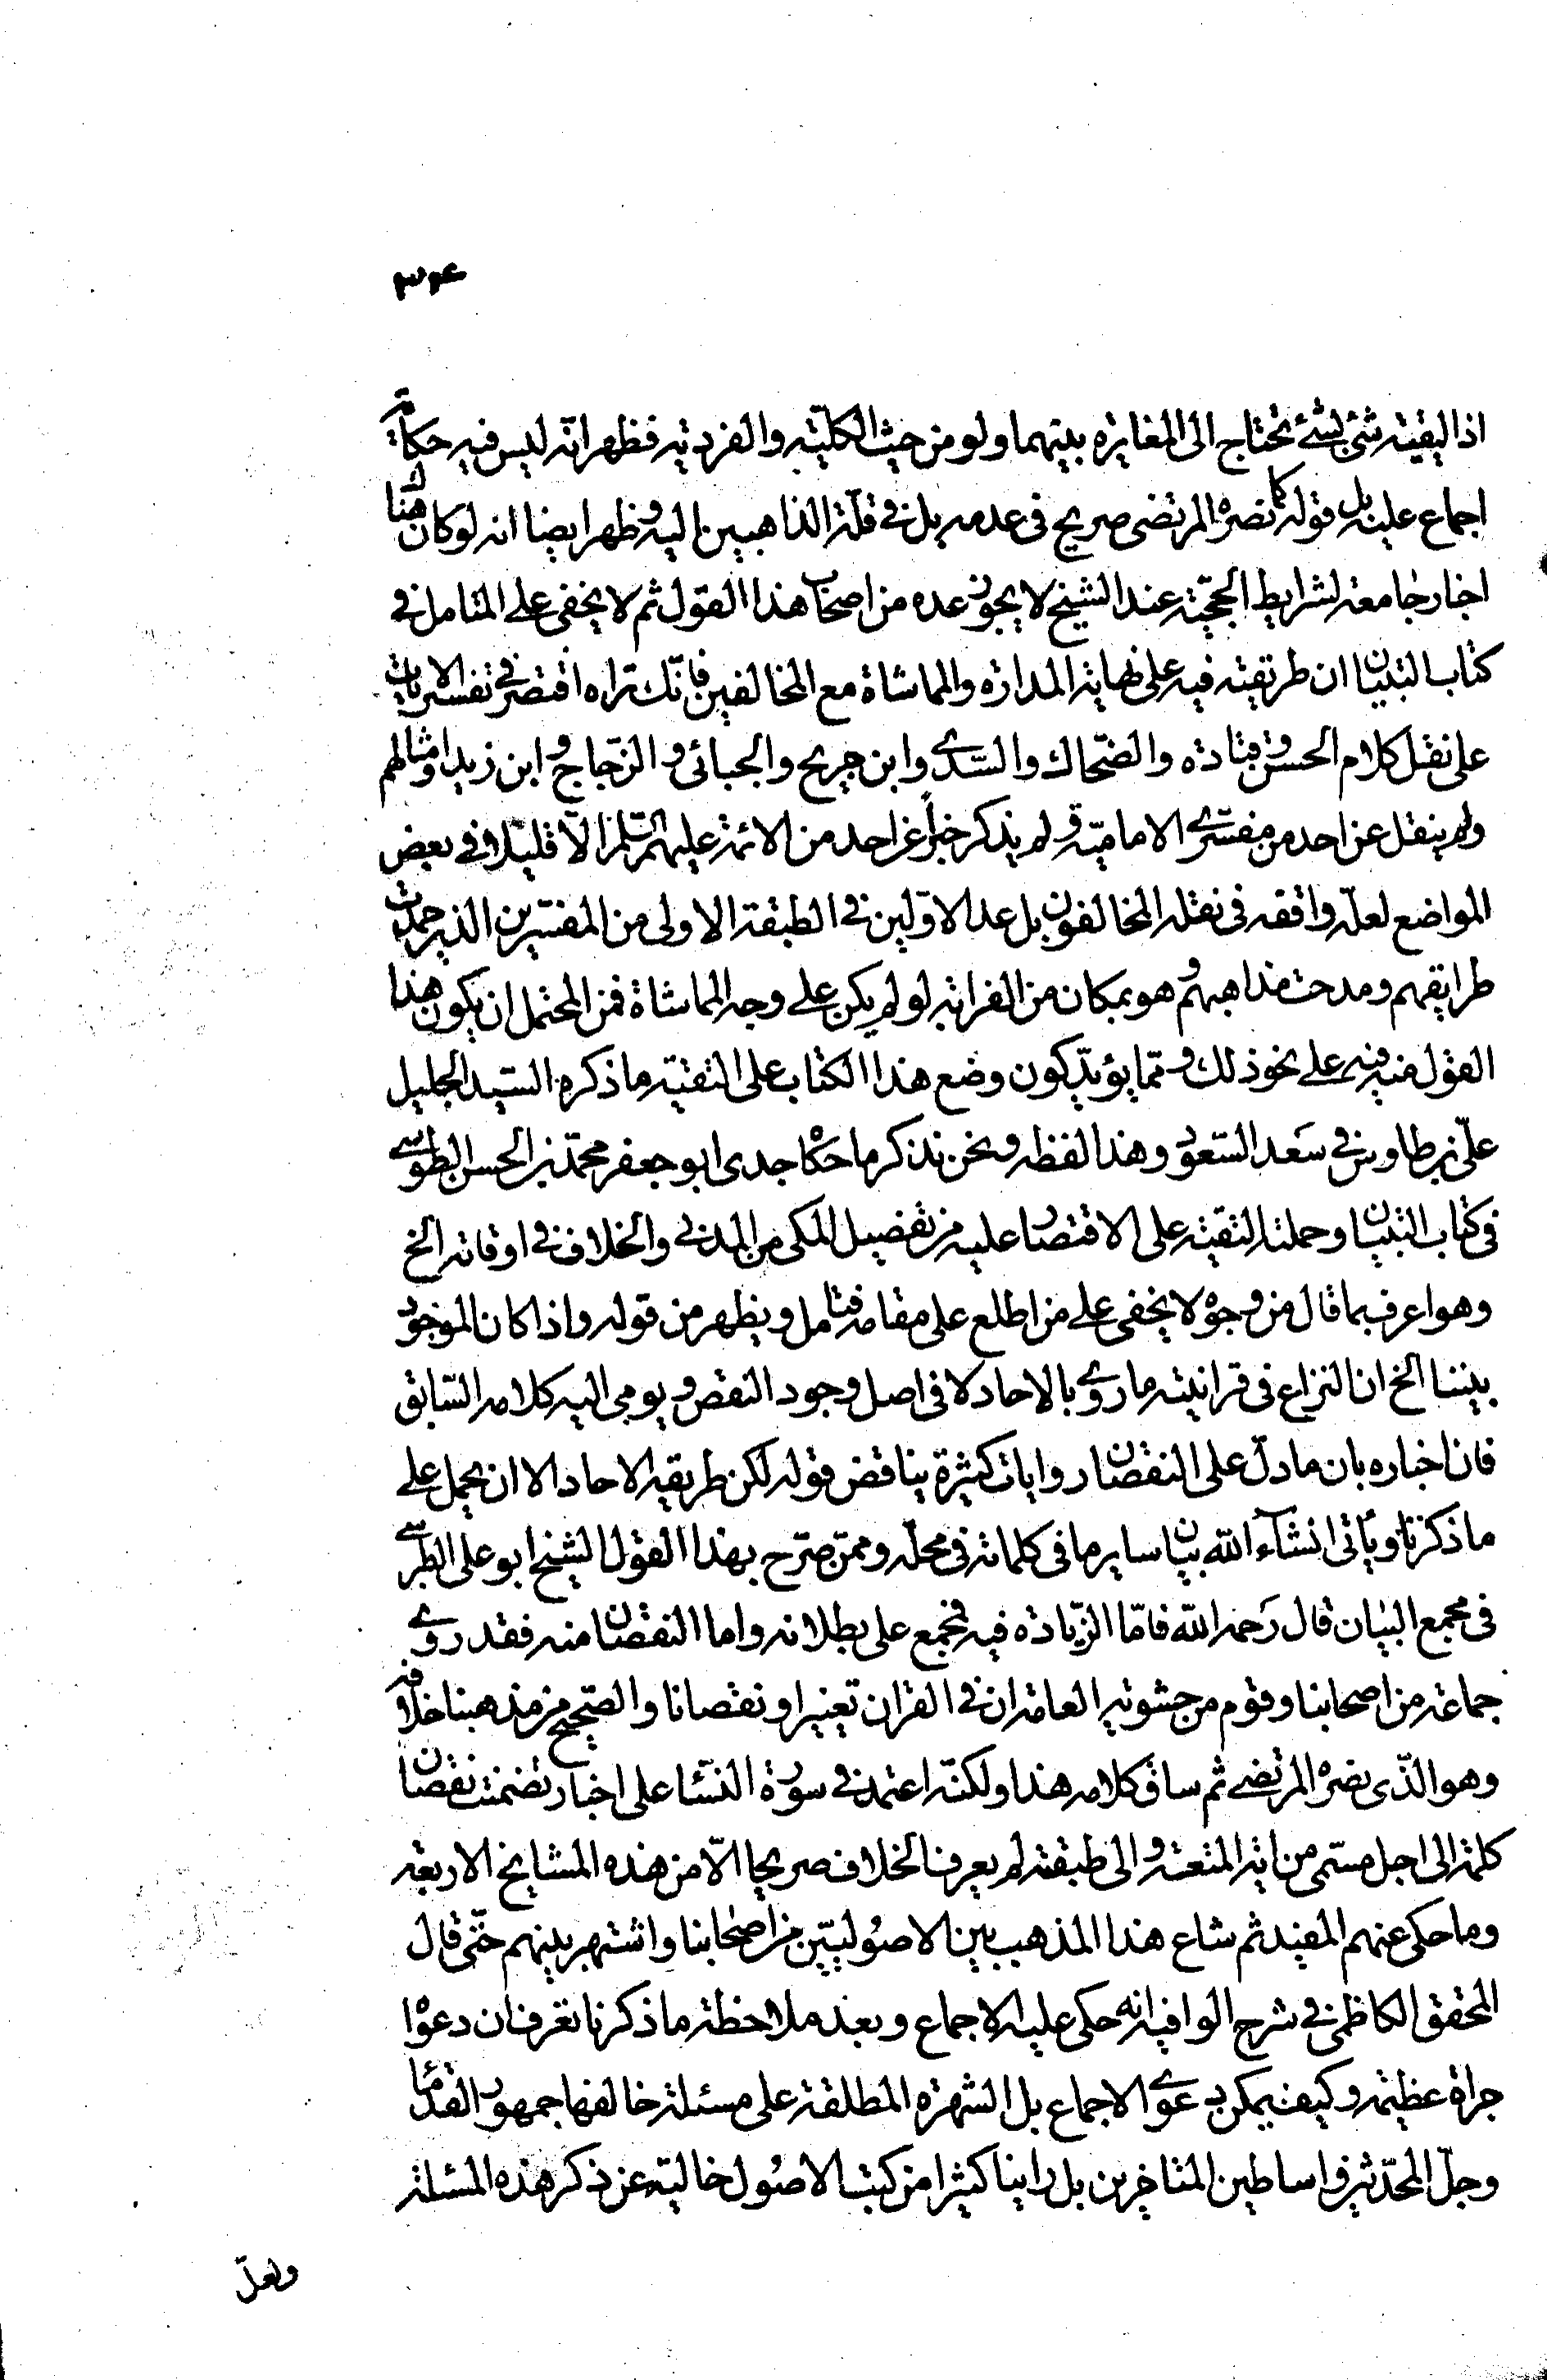 ٣٤
اذا ليقينه شئ بشئ يحتاج الى المغايرة بينهما ولو من حيث الكلية والفردية فظهر انه ليس فيه حكاية
اجماع عليه بل قوله كما نصره المرتضى صريح في عدمه بل في قلة الذاهبين اليه وظهر ايضا انه لو كان هناك
اخبار جامعة لشرايط الحجية عند الشيخ لا يجوز عده من اصحاب هذا القول ثم لا يخفى على المتامل في
كتاب التبيان ان طريقته فيه على نهاية المداراة والمماشاة مع المخالفين فانّك تراه اقتصر في تفسير الايات
على نقل كلام الحسن وقتادة والضحّاك والسّدي وابن جريح والجبائي والزجاج وابن زيد وامثالهم
ولم ينقل عن احد من مفسّري الامامية ولم يذكر خبراً عن احد من الائمة عليهم السّلم الّا قليلا في بعض
المواضع لعلّه وافقه في نقله المخالفون بل عد الاوّلين في الطبقة الاولى من المفسّرين الذين حمدت
طرايقهم ومدحت مذاهبهم وهو بمكان من الغرابة لو لم يكن على وجه المماشاة فمن المحتمل ان يكون هذا
القول منه فيه على نحو ذلك وممّا يؤيّد كون وضع هذا الكتاب على التقية ما ذكره السّيد الجليل
علّي بن طاوس في سَعد السّعود وهذا لفظه ونحن نذكر ما حكاه جدى ابو جعفر محمّد بن الحسن الطوسي
في كتاب التبيان وحملته التقيّة على الاقتصار عليه من تفضيل المكى من المدني والخلاف في اوقاته الخ
وهو اعرف بما قال من وجوه لا يخفى على من اطلع على مقامه فتامل ويظهر من قوله واذا كان الموجود
بيننا الخ ان النزاع في قرانيته ما روي بالاحاد لا في اصل وجود النقص ويومى اليه كلامه السّابق
فان اخباره بان ما دلّ على النقصان روايات كثيرة يناقض قوله لكن طريقه الاحاد الا ان يحمل على
ما ذكرنا وياتى انشآء الله بيان ساير ما في كلماته في محلّه وممّن صّرح بهذا القول الشيخ ابو على الطبرسي
في مجمع البيان قال رَحمه الله فامّا الزّيادة فيه فمجمع على بطلانه واما النقصان منه فقد روي
جماعة من اصحابنا وقوم من حشوية العامة ان في القران تغييرا ونقصانا والصّحيح من مذهبنا خلافه
وهو الذّى نصره المرتضى ثم ساق كلامه هذا ولكنّه اعتمد في سورة النّساء على اخبار تضمنت نقصان
كلمة الى اجل مسّمى من اية المتعة والى طبقته لم يعرف الخلاف صريحا الّا من هذه المشايخ الاربعة
وما حكى عنهم المفيد ثم شاع هذا المذهب بين الاصُوليّين من اصحابنا واشتهر بينهم حتّى قال
المحقق الكاظمى في شرح الوافية انه حكى عليه الاجماع وبعد ملاحظة ما ذكرنا تعرف ان دعواه
جراة عظيمة وكيف يمكن دعوى الاجماع بل الشهرة المطلقة على مسئلة خالفها جمهور القدماء
وجلّ المحدّثين واساطين المتاخرين بل راينا كثيرا من كتب الاصُول خالية عن ذكر هذه المسئلة
ولعلّ